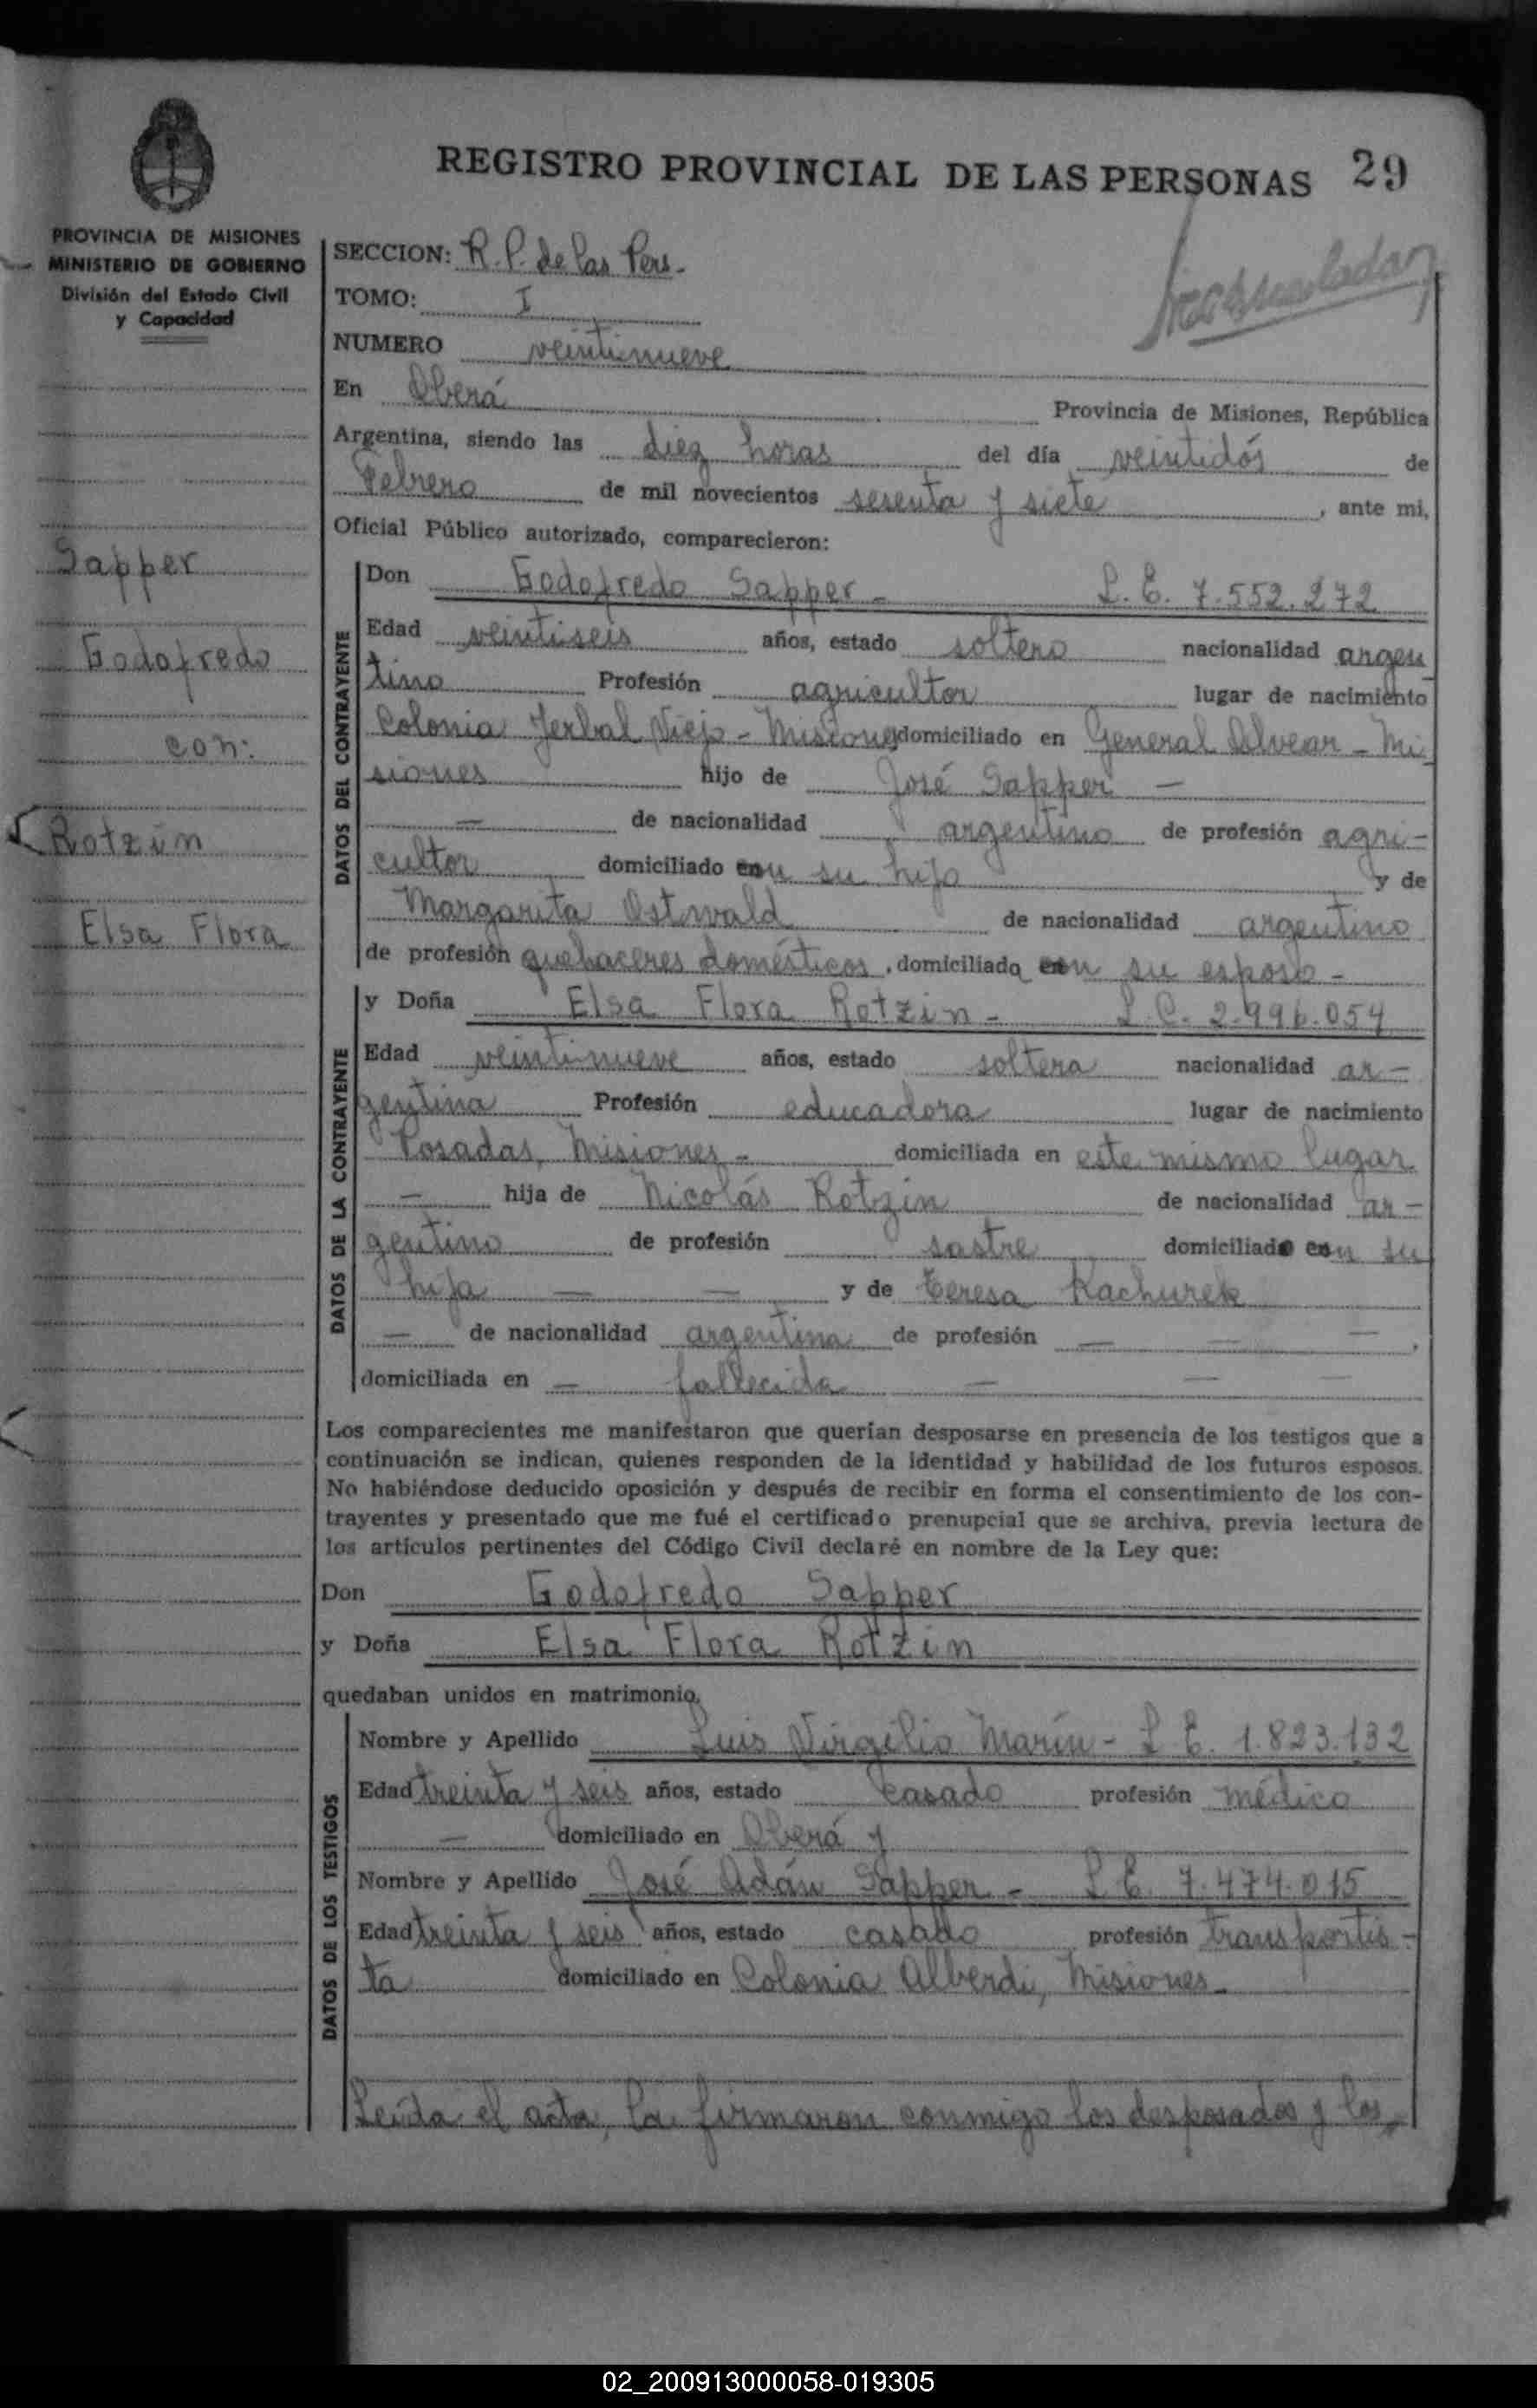 REGISTRO PROVINCIAL DE LAS PERSONAS 29
PROVINCIA DE MISIONES
MINISTERIO DE GOBIERNO
División del Estado Civil
y Capacidad
Sapper
Godofredo
con:
Rotzin
Elsa Flora
SECCION: R.P. de las Pers.
TOMO: I
NUMERO veintinueve
En Oberá Provincia de Misiones, República
Argentina, siendo las diez horas del día veintidós de
Febrero de mil novecientos sesenta y siete, ante mi,
Oficial Público autorizado, comparecieron:
DATOS DEL CONTRAYENTE
Don Godofredo Sapper - L.E. 7.552.272
Edad veintiseis años, estado soltero nacionalidad argen
tino Profesión agricultor lugar de nacimiento
Colonia Yerbal Viejo - Misiones domiciliado en General Alvear - Mi
siones hijo de José Sapper —
— de nacionalidad argentino de profesión agri-
cultor domiciliado con su hijo y de
Margarita Ostwald de nacionalidad argentino
de profesión quehaceres domésticos, domiciliada con su esposo -
DATOS DE LA CONTRAYENTE
y Doña Elsa Flora Rotzin - L.C. 2.996.054
Edad veintinueve años, estado soltera nacionalidad ar-
gentina Profesión educadora lugar de nacimiento
Posadas, Misiones - domiciliada en este mismo lugar
— hija de Nicolás Rotzin de nacionalidad ar-
gentino de profesión sastre domiciliado con su
hija — — y de Teresa Kachurek
— de nacionalidad argentina de profesión — — —,
domiciliada en — fallecida — — —
Los comparecientes me manifestaron que querían desposarse en presencia de los testigos que a
continuación se indican, quienes responden de la identidad y habilidad de los futuros esposos.
No habiéndose deducido oposición y después de recibir en forma el consentimiento de los con-
trayentes y presentado que me fué el certificado prenupcial que se archiva, previa lectura de
los artículos pertinentes del Código Civil declaré en nombre de la Ley que:
Don Godofredo Sapper
y Doña Elsa Flora Rotzin
quedaban unidos en matrimonio.
DATOS DE LOS TESTIGOS
Nombre y Apellido Luis Virgilio Marín - L.E. 1.823.132
Edad treinta y seis años, estado casado profesión médico
— domiciliado en Oberá y
Nombre y Apellido José Adán Sapper - L.E. 7.474.015
Edad treinta y seis años, estado casado profesión transportis-
ta domiciliado en Colonia Alberdi, Misiones.
Leída el acta, la firmaron conmigo los desposados y los
02_200913000058-019305